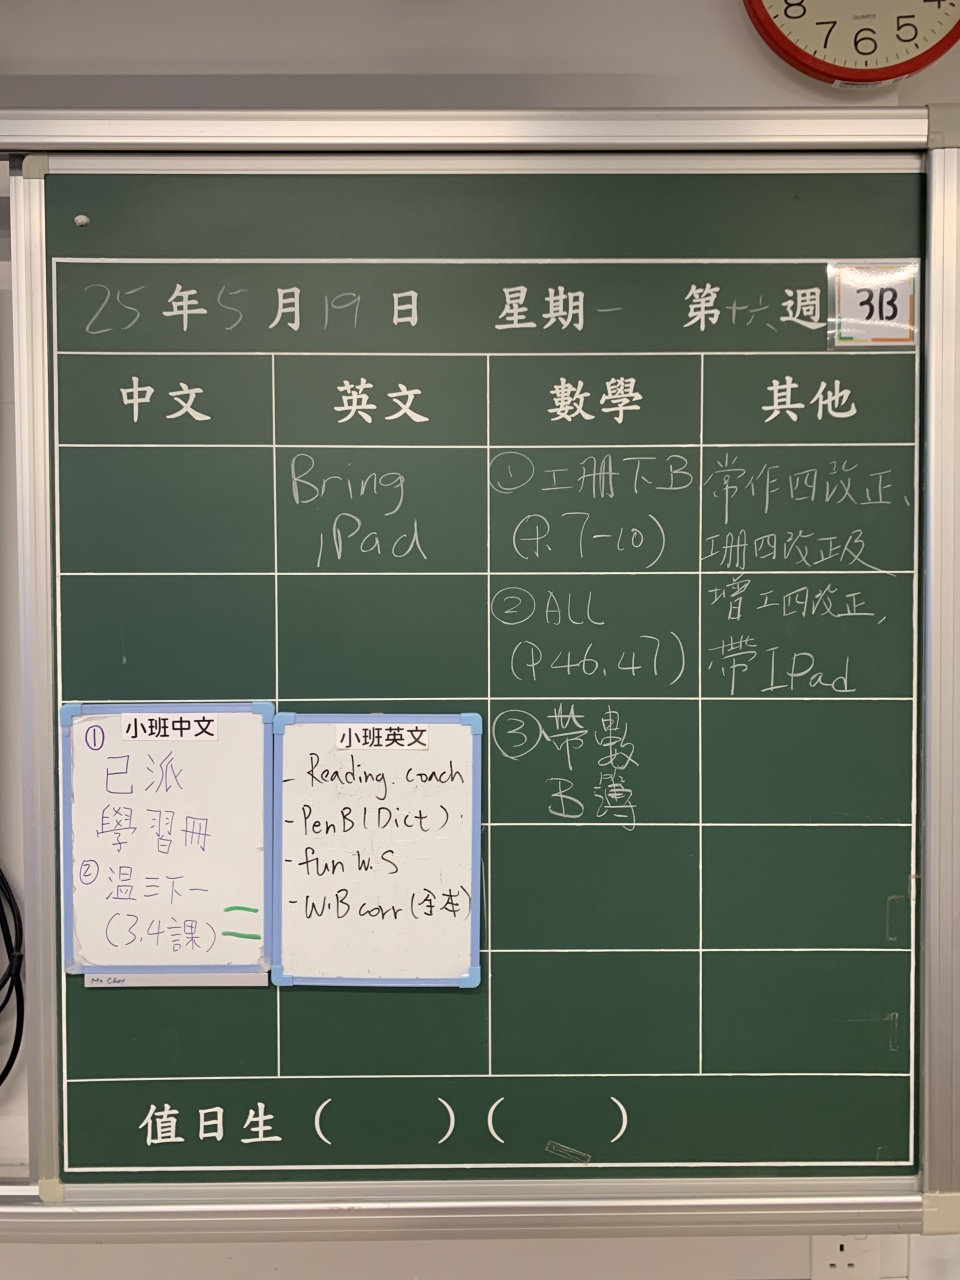 8 7 6 5 4
QUARTZ
25年5月19日 星期一 第十六週 3B
中文 英文 數學 其他
Bring
iPad
①工册下B
(P.7-10)
②ALL
(P46,47)
③帶數
B簿
常作四改正、
工册四改正及
增工四改正,
帶IPad
小班中文
①
已派
學習冊
②溫三下一
(3,4課)
小班英文
- Reading coach
- PenB(Dict)
- fun W.S
- W.B corr (全本)
值日生( )( )